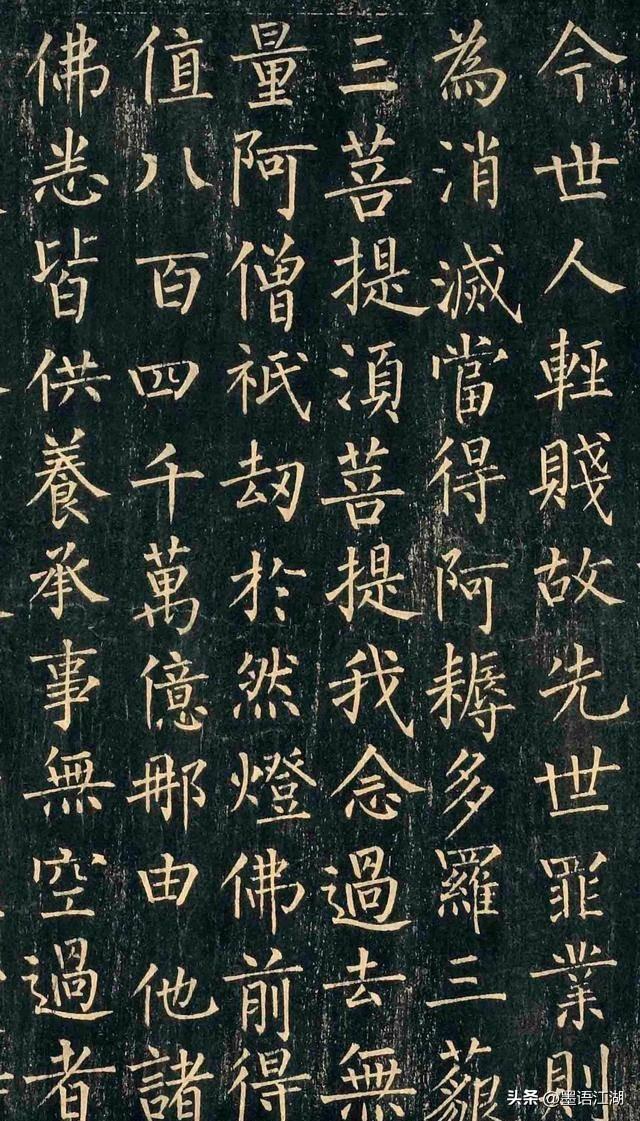 今世人輕賤故先世罪業則
為消滅當得阿耨多羅三藐
三菩提須菩提我念過去無
量阿僧祇劫於然燈佛前得
值八百四千萬億那由他諸
佛悉皆供養承事無空過者
头条 @墨语江湖